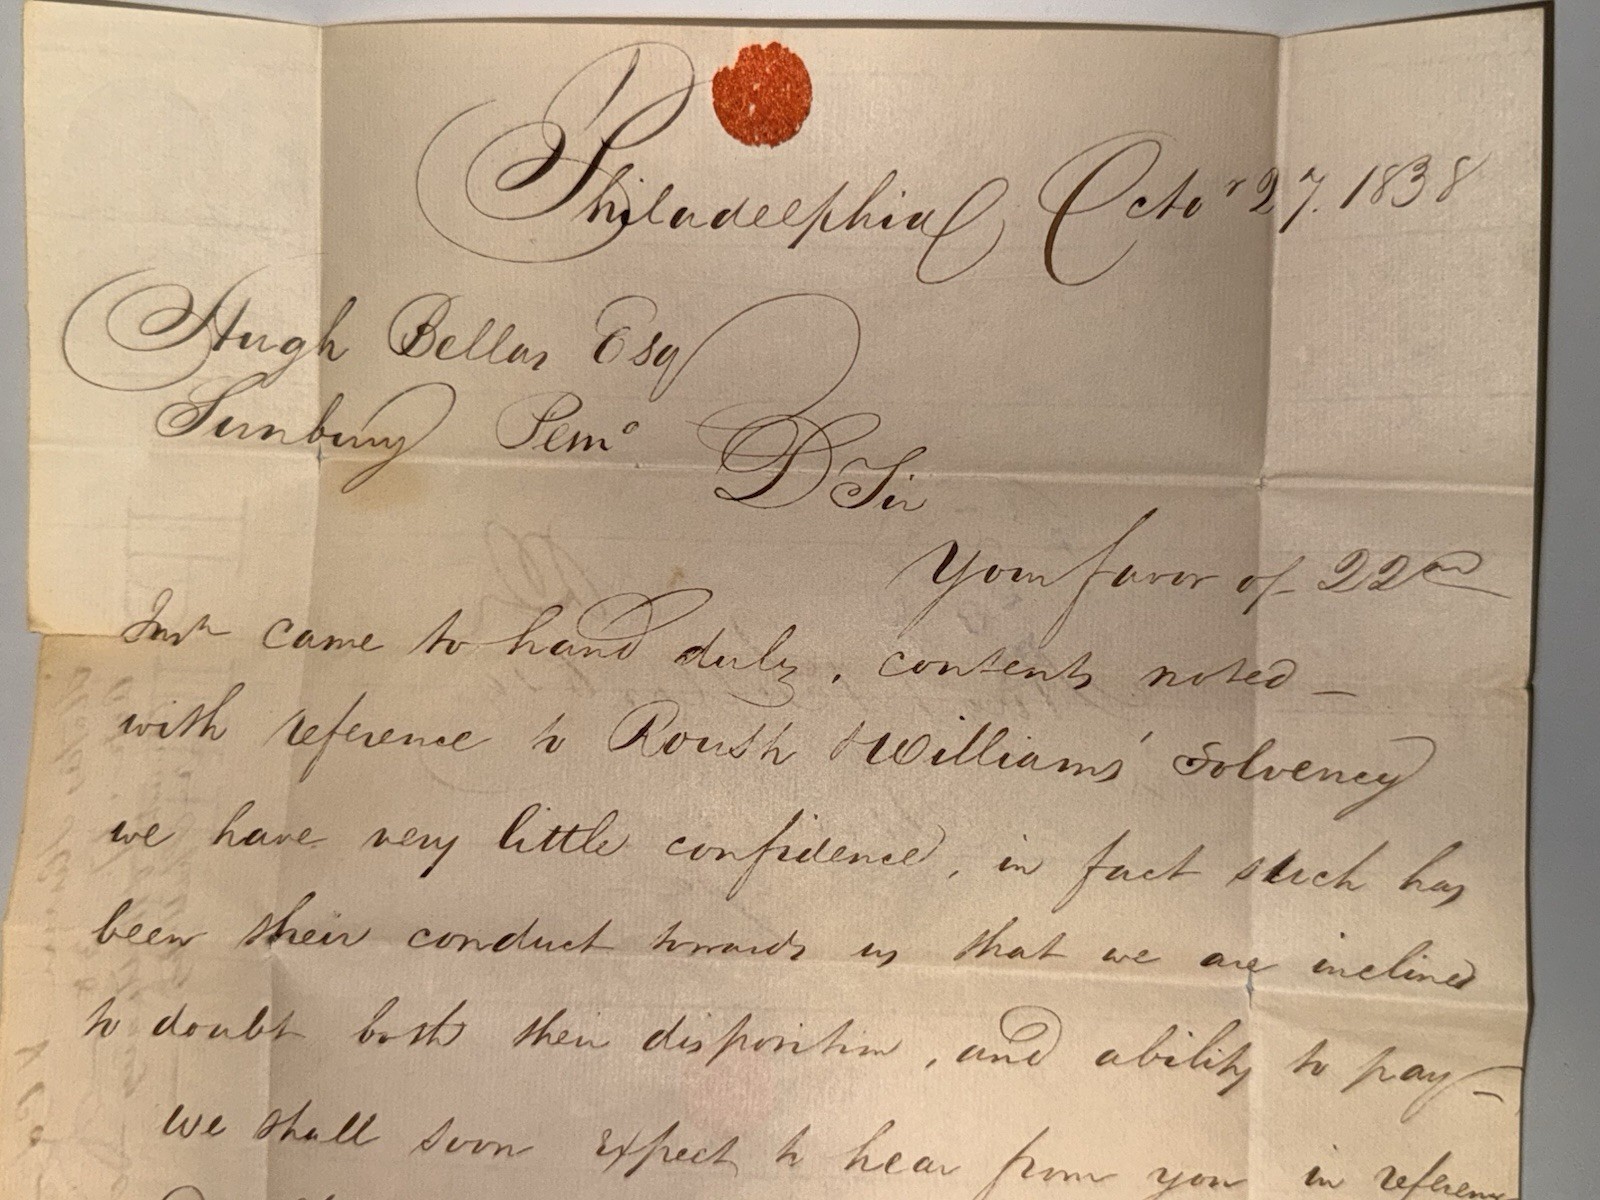 Philadelphia Octor 27. 1838
Hugh Bellas Esq
Sunbury Penna
D Sir
Your favor of 22nd
Inst came to hand duly, contents noted –
with reference to Roush & Williams' Solvency
we have very little confidence, in fact such has
been their conduct towards us that we are inclined
to doubt both their disposition, and ability to pay –
we shall soon expect to hear from you in reference